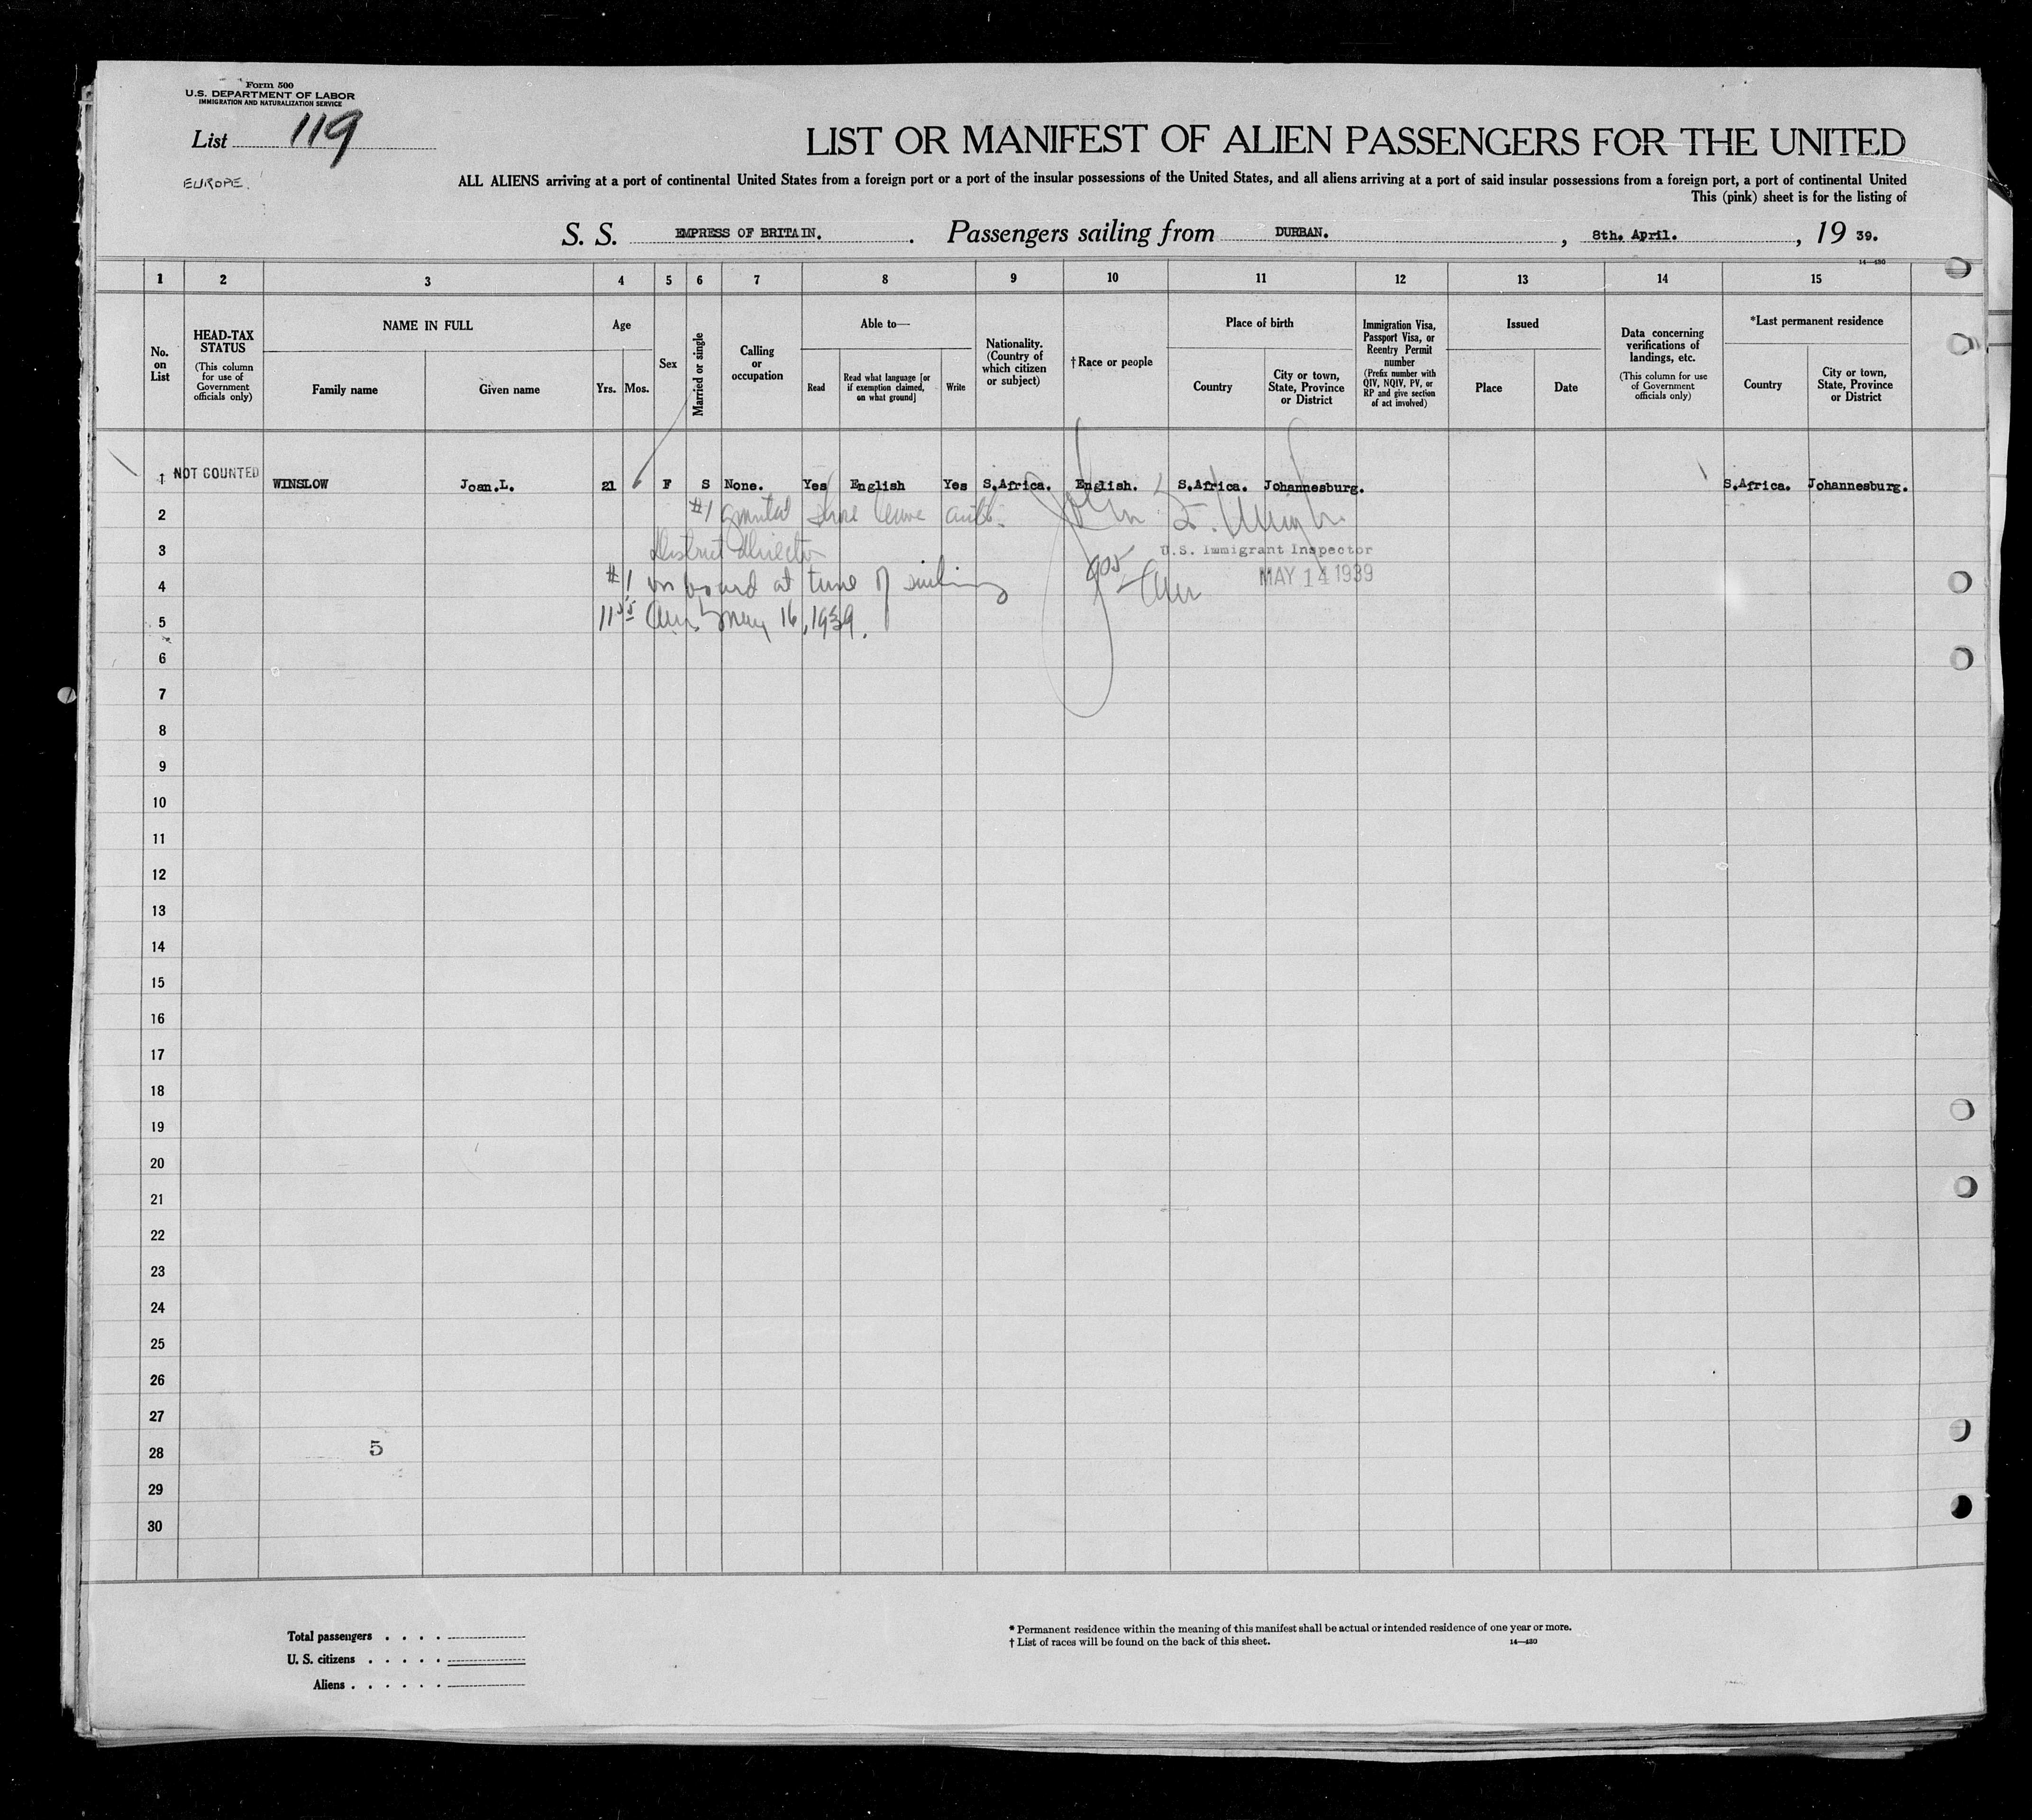 Form 500
U.S. DEPARTMENT OF LABOR
IMMIGRATION AND NATURALIZATION SERVICE
List 119
EUROPE.
LIST OR MANIFEST OF ALIEN PASSENGERS FOR THE UNITED
ALL ALIENS arriving at a port of continental United States from a foreign port or a port of the insular possessions of the United States, and all aliens arriving at a port of said insular possessions from a foreign port, a port of continental United
This (pink) sheet is for the listing of
S. S. EMPRESS OF BRITAIN. Passengers sailing from DURBAN., 8th. April., 19 39.
14—430
1 2 3 4 5 6 7 8 9 10 11 12 13 14 15
No. on List
HEAD-TAX STATUS
(This column for use of Government officials only)
NAME IN FULL
Family name Given name
Age
Yrs. Mos.
Sex
Married or single
Calling or occupation
Able to—
Read
Read what language [or if exemption claimed, on what ground]
Write
Nationality. (Country of which citizen or subject)
†Race or people
Place of birth
Country
City or town, State, Province or District
Immigration Visa, Passport Visa, or Reentry Permit number
(Prefix number with QIV, NQIV, PV, or RP and give section of act involved)
Issued
Place Date
Data concerning verifications of landings, etc.
(This column for use of Government officials only)
*Last permanent residence
Country
City or town, State, Province or District
1 NOT COUNTED WINSLOW Joan.L. 21 F S None. Yes English Yes S.Africa. English. S.Africa. Johannesburg. S.Africa. Johannesburg.
2 #1 granted shore leave auth. John
3 District Director U.S. Immigrant Inspector
4 #1 on board at time of sailing MAY 14 1939
5 11 55 am. May 16, 1939.
6
7
8
9
10
11
12
13
14
15
16
17
18
19
20
21
22
23
24
25
26
27
28 5
29
30
Total passengers . . . .
U. S. citizens . . . . .
Aliens . . . . . .
* Permanent residence within the meaning of this manifest shall be actual or intended residence of one year or more.
† List of races will be found on the back of this sheet. 14—430